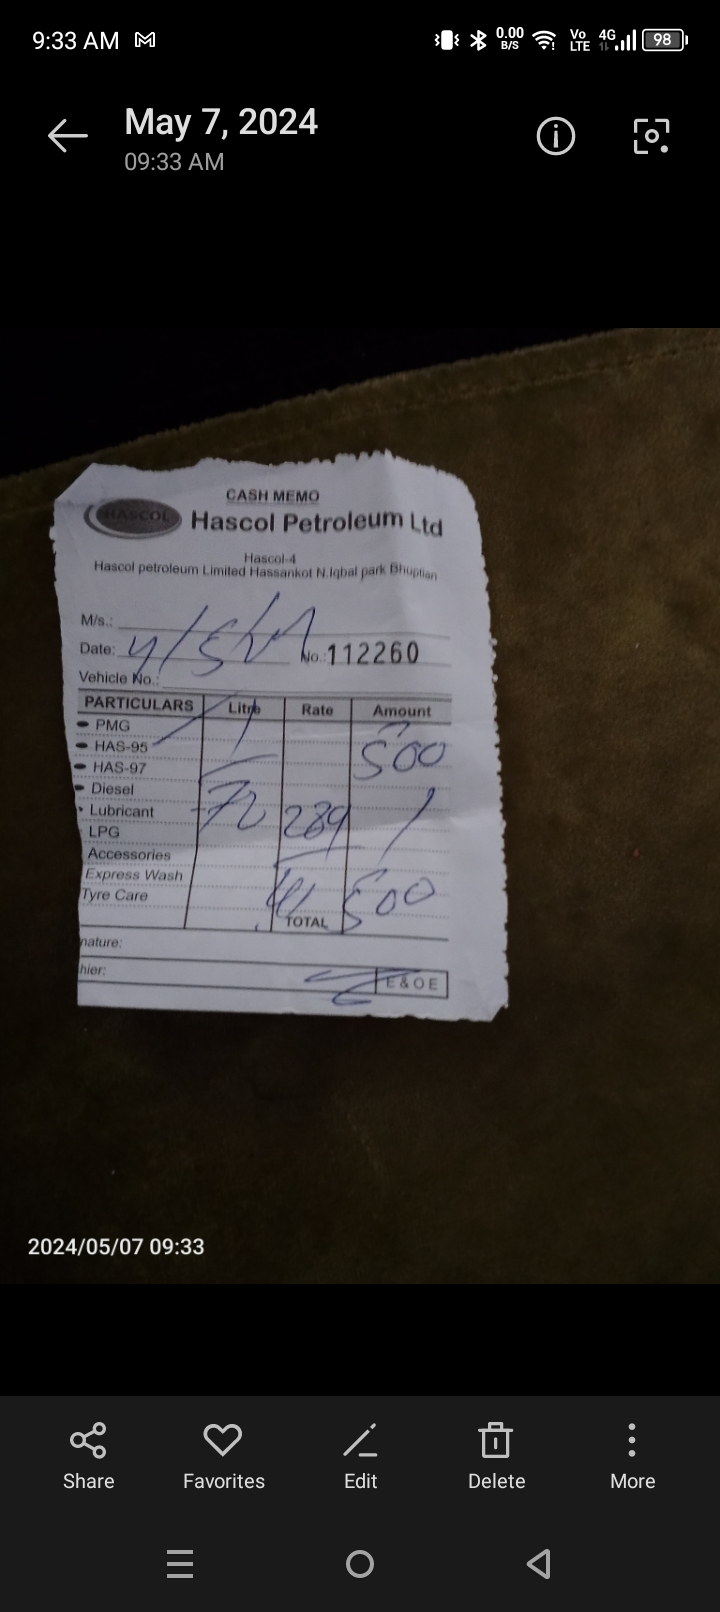 9:33 AM
0.00 B/S Vo LTE 4G 98
May 7, 2024
09:33 AM
CASH MEMO
HASCOL Hascol Petroleum Ltd
Hascol-4
Hascol petroleum Limited Hassankot N.Iqbal park Bhuptian
M/s.:
Date: No.:112260
Vehicle No.:
PARTICULARS Litre Rate Amount
PMG
HAS-95 500
HAS-97
Diesel
Lubricant 289
LPG
Accessories
Express Wash
Tyre Care 500
TOTAL
nature:
hier:
E & O E
2024/05/07 09:33
Share Favorites Edit Delete More